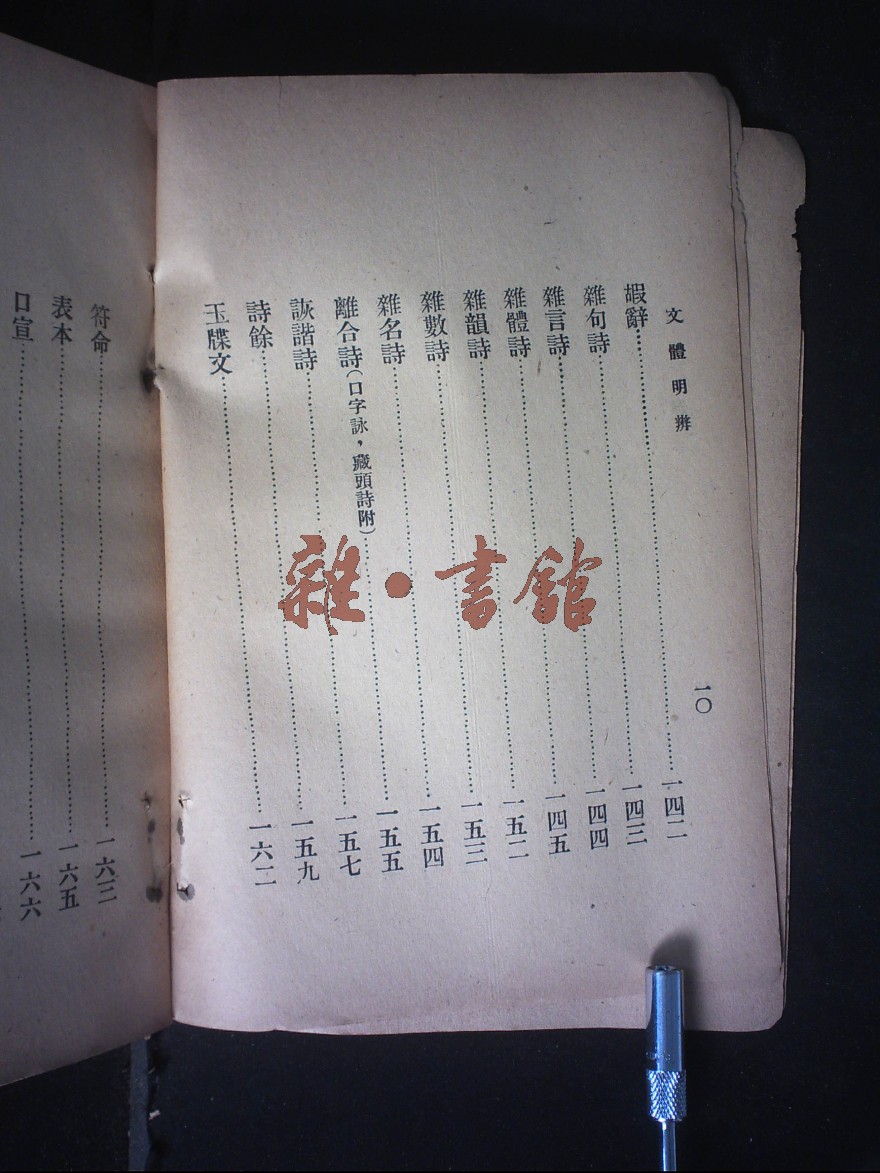 文體明辨
一〇
嘏辭……一四二
雜句詩……一四三
雜言詩……一四四
雜體詩……一四五
雜韻詩……一五二
雜數詩……一五三
雜名詩……一五四
離合詩(口字詠，藏頭詩附)……一五五
詼諧詩……一五七
詩餘……一五九
玉牒文……一六二
符命……一六三
表本……一六五
口宣……一六六
雜·書館